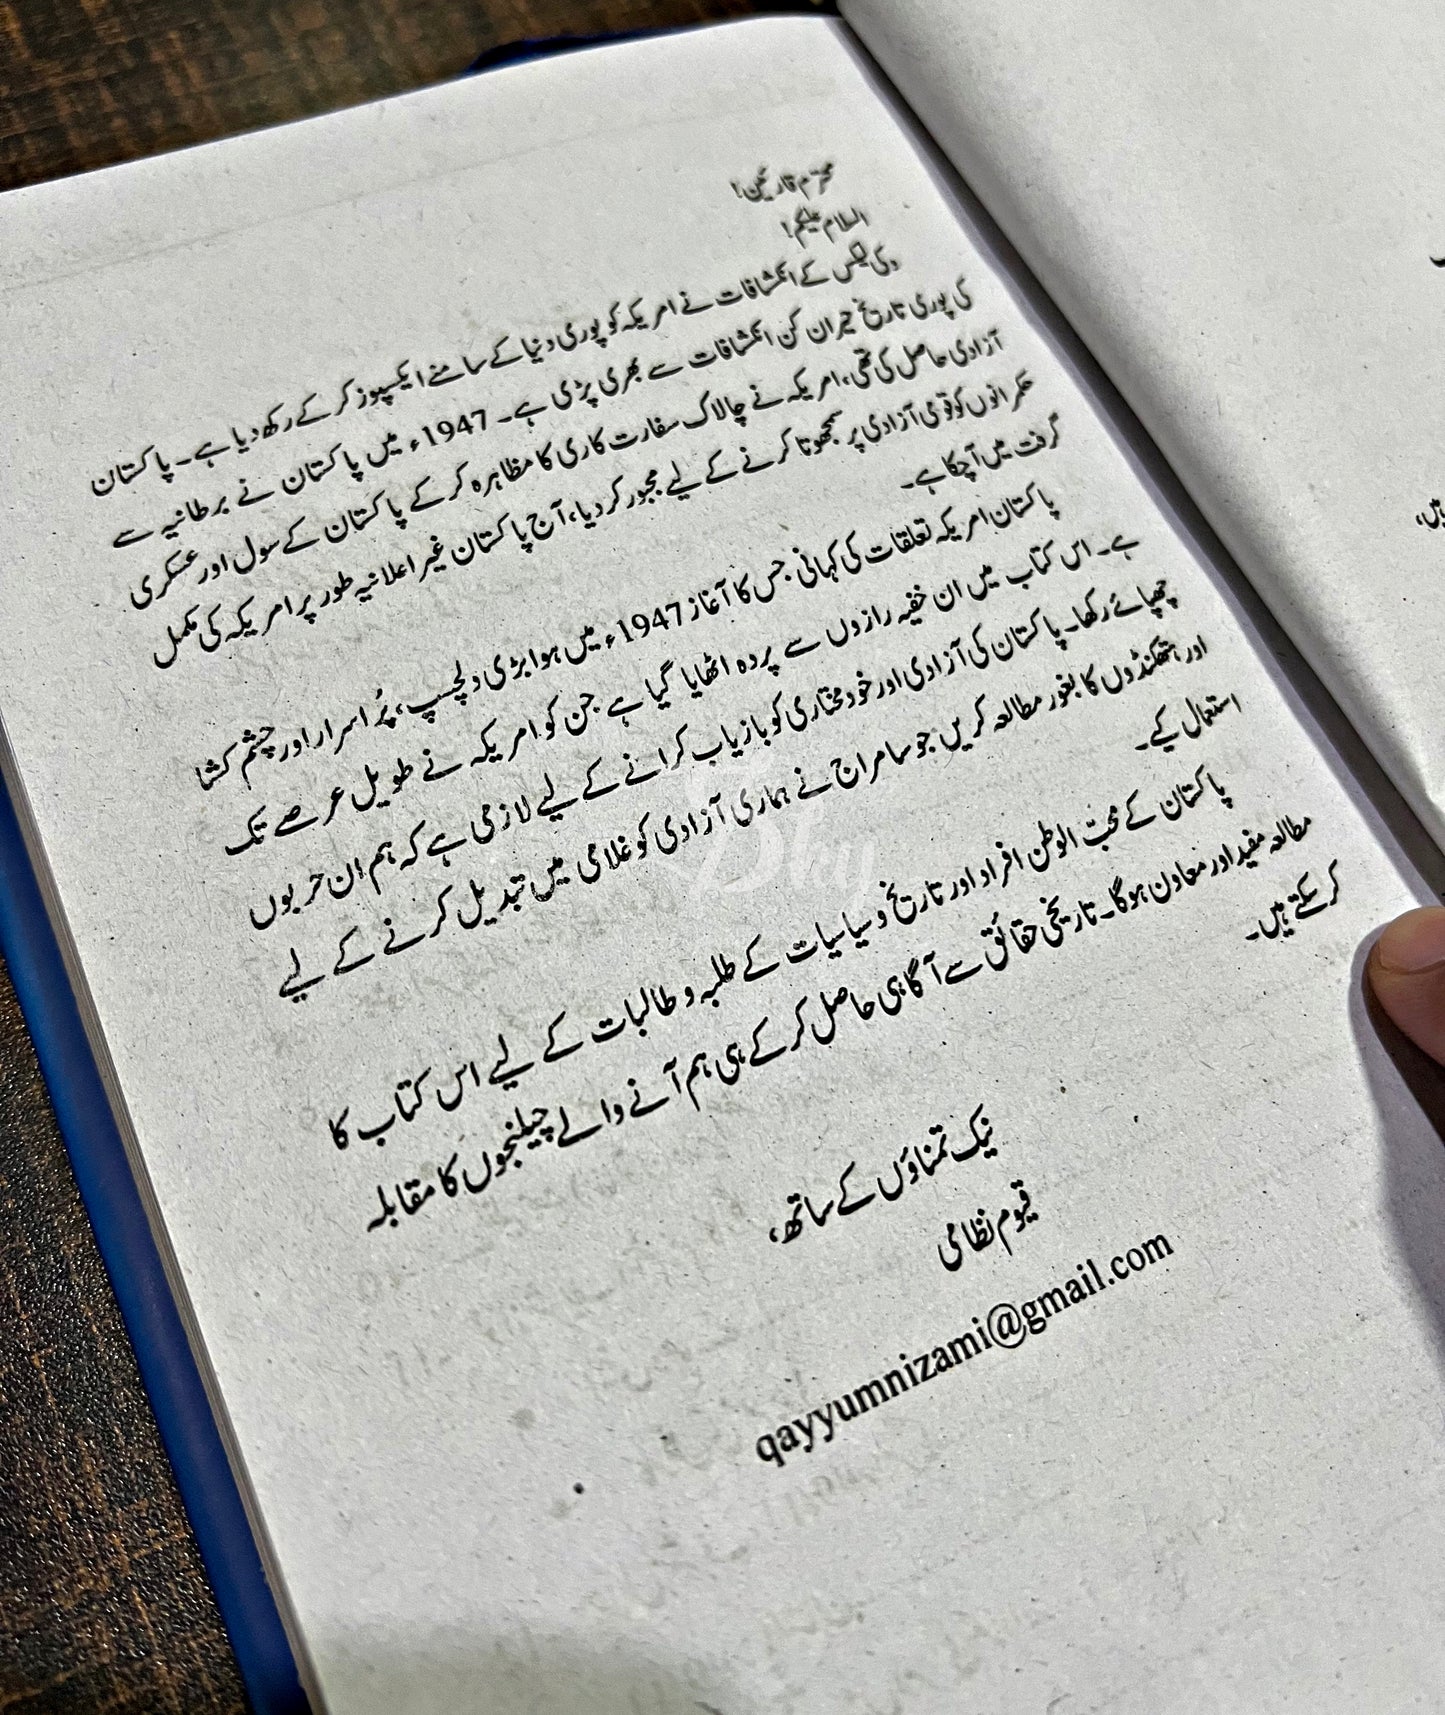 محترم قارئین!
السلام علیکم!
وکی لیکس کے انکشافات نے امریکہ کو پوری دنیا کے سامنے ایکسپوز کر کے رکھ دیا ہے۔ پاکستان
کی پوری تاریخ حیران کن انکشافات سے بھری پڑی ہے۔ 1947ء میں پاکستان نے برطانیہ سے
آزادی حاصل کی تھی، امریکہ نے چالاک سفارت کاری کا مظاہرہ کر کے پاکستان کے سول اور عسکری
حکمرانوں کو قومی آزادی پر سمجھوتا کرنے کے لیے مجبور کر دیا، آج پاکستان غیر اعلانیہ طور پر امریکہ کی مکمل
گرفت میں آچکا ہے۔
پاکستان امریکہ تعلقات کی کہانی جس کا آغاز 1947ء میں ہوا بڑی دلچسپ، پُر اسرار اور چشم کشا
ہے۔ اس کتاب میں ان خفیہ رازوں سے پردہ اٹھایا گیا ہے جن کو امریکہ نے طویل عرصے تک
چھپائے رکھا۔ پاکستان کی آزادی اور خود مختاری کو بازیاب کرانے کے لیے لازمی ہے کہ ہم ان حربوں
اور ہتھکنڈوں کا بغور مطالعہ کریں جو سامراج نے ہماری آزادی کو غلامی میں تبدیل کرنے کے لیے
استعمال کیے۔
پاکستان کے محبّ الوطن افراد اور تاریخ و سیاسیات کے طلبہ و طالبات کے لیے اس کتاب کا
مطالعہ مفید اور معاون ہوگا۔ تاریخی حقائق سے آگاہی حاصل کر کے ہی ہم آنے والے چیلنجوں کا مقابلہ
کر سکتے ہیں۔
نیک تمناؤں کے ساتھ،
قیوم نظامی
qayyumnizami@gmail.com